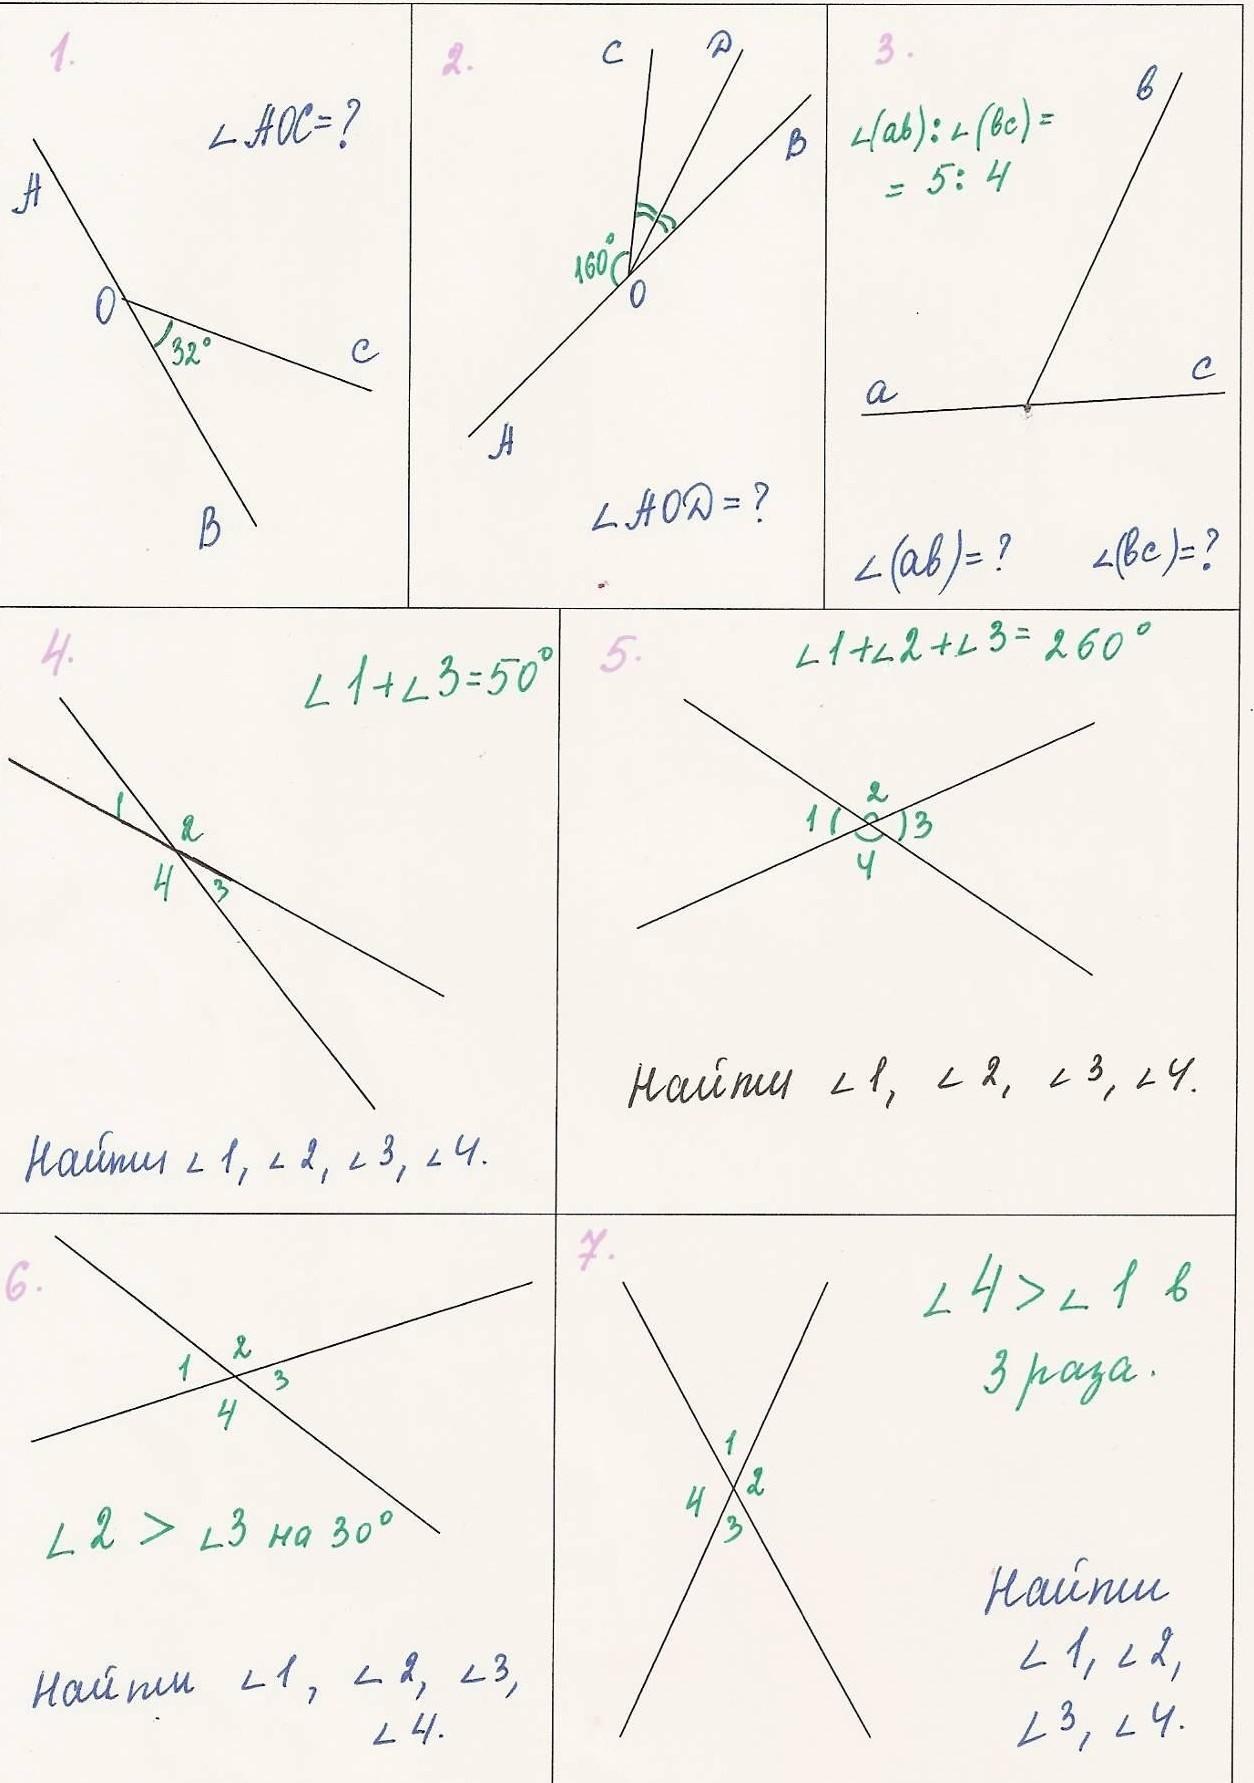 1.
∠AOC=?
A
O
32°
C
B
2.
C
D
B
160°
O
A
∠AOD=?
3.
∠(ав):∠(вс)=
= 5:4
в
а
с
∠(ав)=? ∠(вс)=?
4.
∠1+∠3=50°
1
2
4
3
Найти ∠1, ∠2, ∠3, ∠4.
5.
∠1+∠2+∠3=260°
2
1
3
4
Найти ∠1, ∠2, ∠3, ∠4.
6.
2
1
3
4
∠2 > ∠3 на 30°
Найти ∠1, ∠2, ∠3,
∠4.
7.
∠4>∠1 в
3 раза.
1
4
2
3
Найти
∠1, ∠2,
∠3, ∠4.